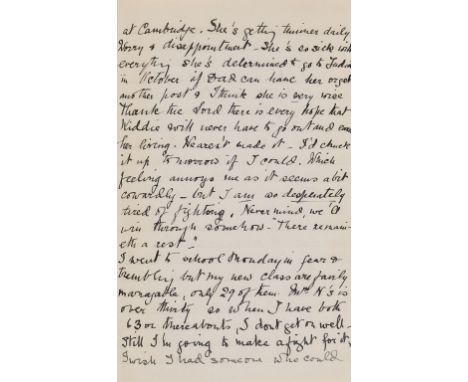 at Cambridge. She's getting thinner daily
Worry & disappointment. She's so sick with
everything she's determined to go to India
in October if Dad can have her or get
another post & I think she is very wise
Thank the Lord there is every hope that
Kiddie will never have to go out and earn
her living. Heaven't made it - I'd chuck
it up tomorrow if I could. Which
feeling annoys me as it seems a bit
cowardly - but I am so desperately
tired of fighting. Never mind, we'll
win through somehow - "There remain-
eth a rest".
I went to school Monday in fear &
trembling but my new class are fairly
manageable, only 29 of them. Mrs N's is
over thirty so when I have both
63 or thereabouts, I don't get on well -
Still I'm going to make a fight for it,
I wish I had someone who could